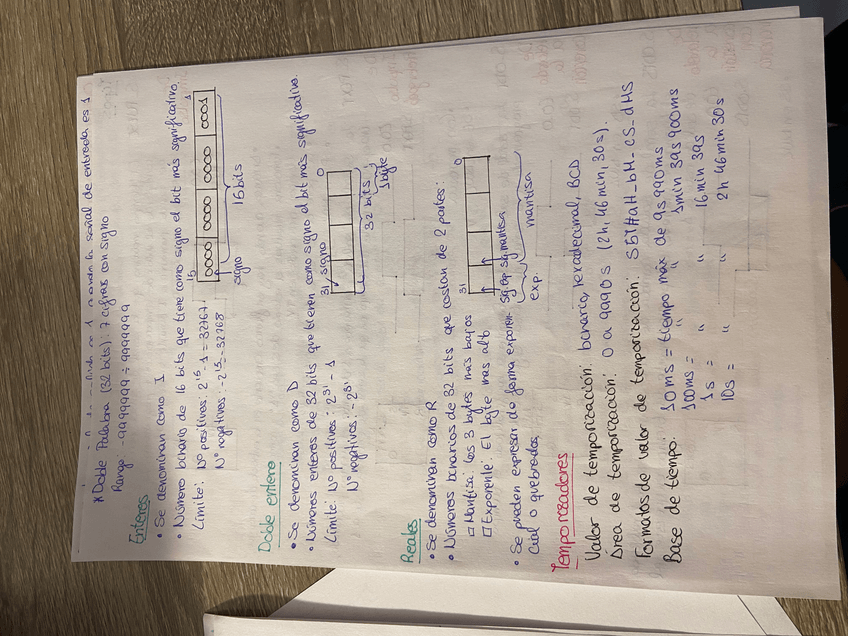 la señal de entrada es 1
* Doble Palabra (32 bits): 7 cifras con signo
Rango: -9999999 ÷ 9999999
Enteros
• Se denominan como I
• Número binario de 16 bits que tiene como signo el bit más significativo.
Límite: Nº positivos: 2^15 - 1 = 32767
Nº negativos: -2^15 = -32768
15
0000 0000 0000 0001
signo
16 bits
Doble entero
• Se denominan como D
• Números enteros de 32 bits que tienen como signo el bit más significativo.
Límite: Nº positivos: 2^31 - 1
Nº negativos: -2^31
31 signo 0
32 bits
1 byte
Reales
• Se denominan como R
• Números binarios de 32 bits que constan de 2 partes:
□ Mantisa: los 3 bytes más bajos
□ Exponente: El byte más alto
31 0
sg. exp sg. mantisa
exp. mantisa
• Se pueden expresar de forma exponen-
cial o quebrados
Temporizadores
Valor de temporización: binario, hexadecimal, BCD
Área de temporización: 0 a 9990s (2h, 46min, 30s).
Formatos de valor de temporización: S5T#aH_bM_cS_dMS
Base de tiempo: 10ms = tiempo máx de 9s 990ms
100ms = " " 1min 39s 900ms
1s = " " 16min 39s
10s = " " 2h 46min 30s